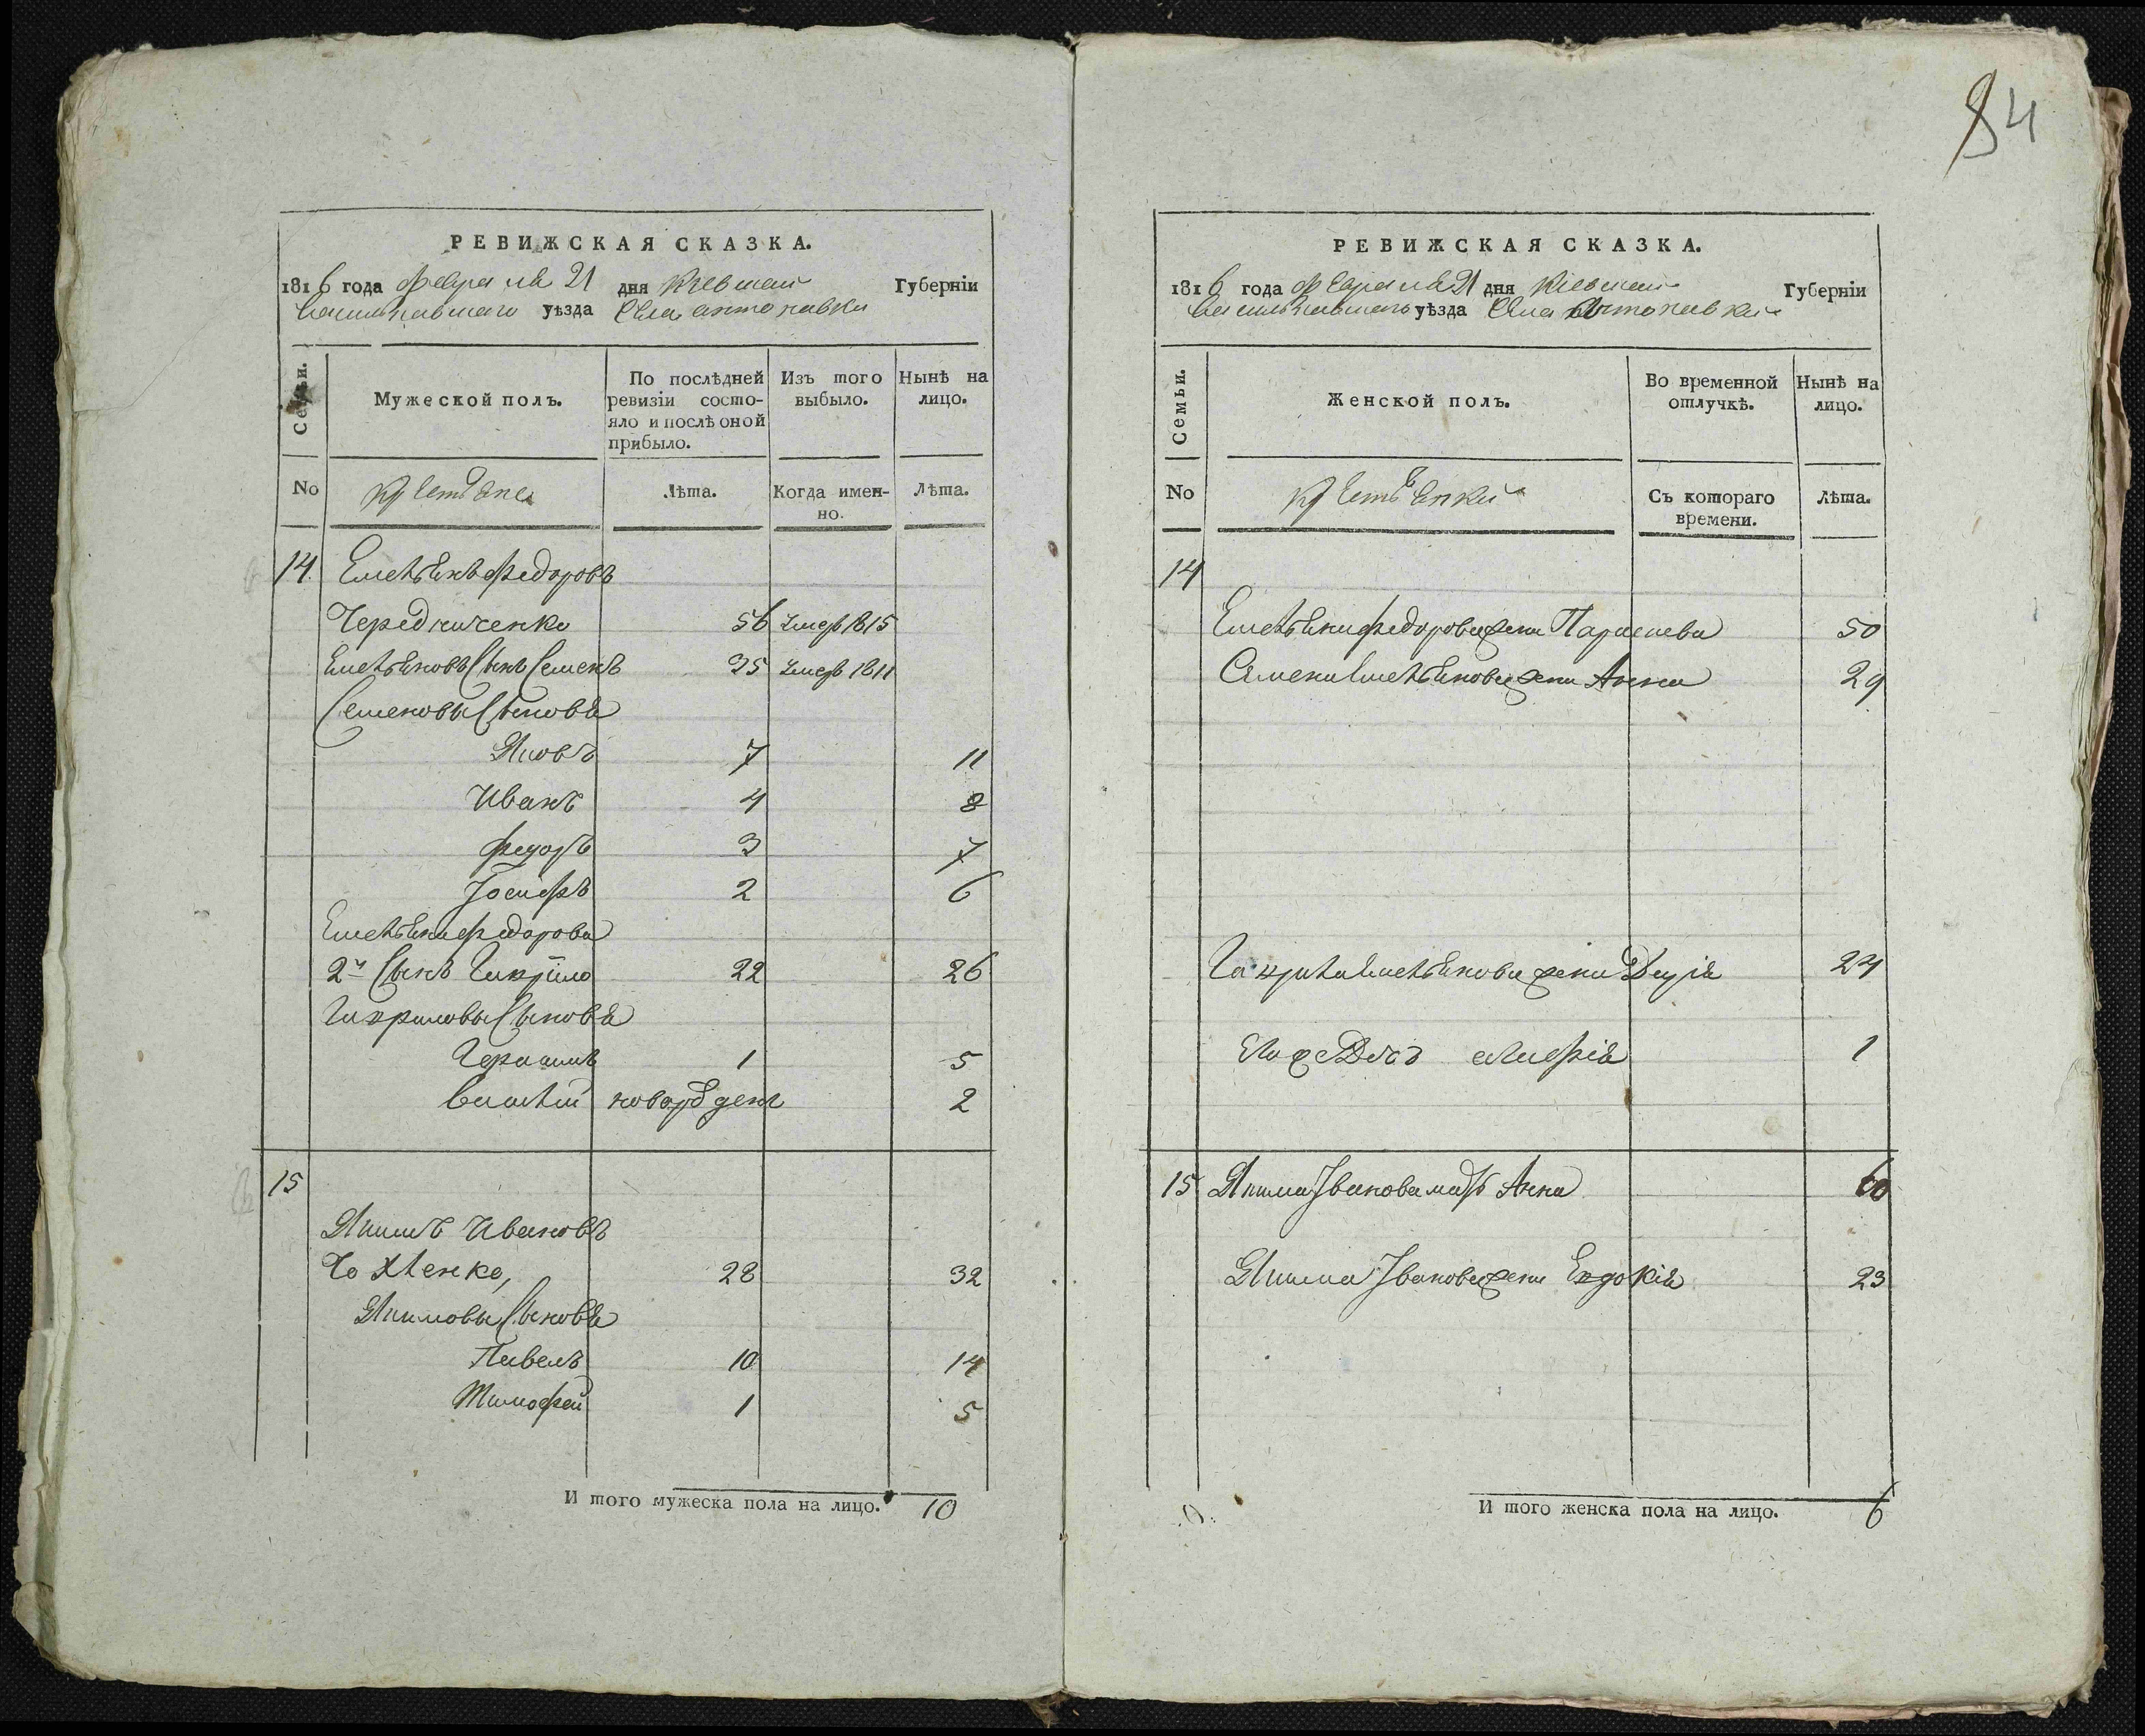 84
РЕВИЖСКАЯ СКАЗКА.
1816 года февраля 21 дня Киевской Губерніи
Васильковского уѣзда Села антоновки
Семьи.
Мужеской полъ.
По послѣдней ревизіи состо-
яло и послѣ оной прибыло.
Изъ того выбыло.
Нынѣ на лицо.
No
крестьяне
Лѣта.
Когда имен-
но.
Лѣта.
14. Емельянъ федоровъ
Чередниченко 56 умеръ 1815
Емельяновъ Сынъ Семенъ 35 умеръ 1811
Семеновы Сыновья
Яковъ 7 11
Иванъ 4 8
федоръ 3 7
Іосифъ 2 6
Емельяна федорова
2й Сынъ Гаврїло 22 26
Гавриловы Сыновья
Герасимъ 1 5
Василій новорожденъ 2
15
Якимъ Ивановъ
28 32
Якимовы Сыновья
Павелъ 10 14
Тимофей 1 5
И того мужеска пола на лицо. 10
РЕВИЖСКАЯ СКАЗКА.
1816 года февраля 21 дня Киевской Губерніи
Васильковского уѣзда Села Антоновки
Семьи.
Женской полъ.
Во временной отлучкѣ.
Нынѣ на лицо.
No
крестьянки
Съ котораго времени.
Лѣта.
14
Емельяна федорова жена Параскева 50
Семена Емельянова жена Анна 29
Гаврила Емельянова жена Дарія 24
Его же Дочь 1
15 Якима Іванова мать Анна 60
Якима Іванова жена Евдокія 23
И того женска пола на лицо. 6